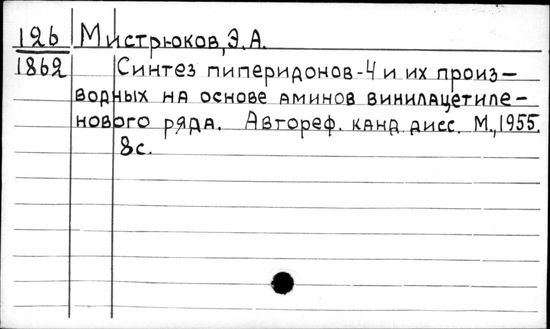 126 Мистрюков, Э.А.
1862 Синтез пиперидонов-4 и их произ-
водных на основе аминов винилацетиле-
нового ряда. Автореф. канд. дисс. М., 1955.
8с.